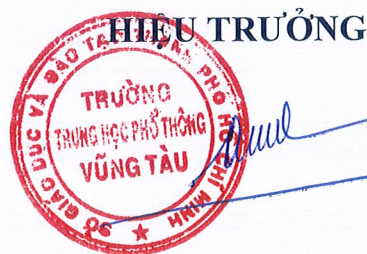 HIỆU TRƯỞNG
SỞ GIÁO DỤC VÀ ĐÀO TẠO THÀNH PHỐ HỒ CHÍ MINH
TRƯỜNG
TRUNG HỌC PHỔ THÔNG
VŨNG TÀU
★